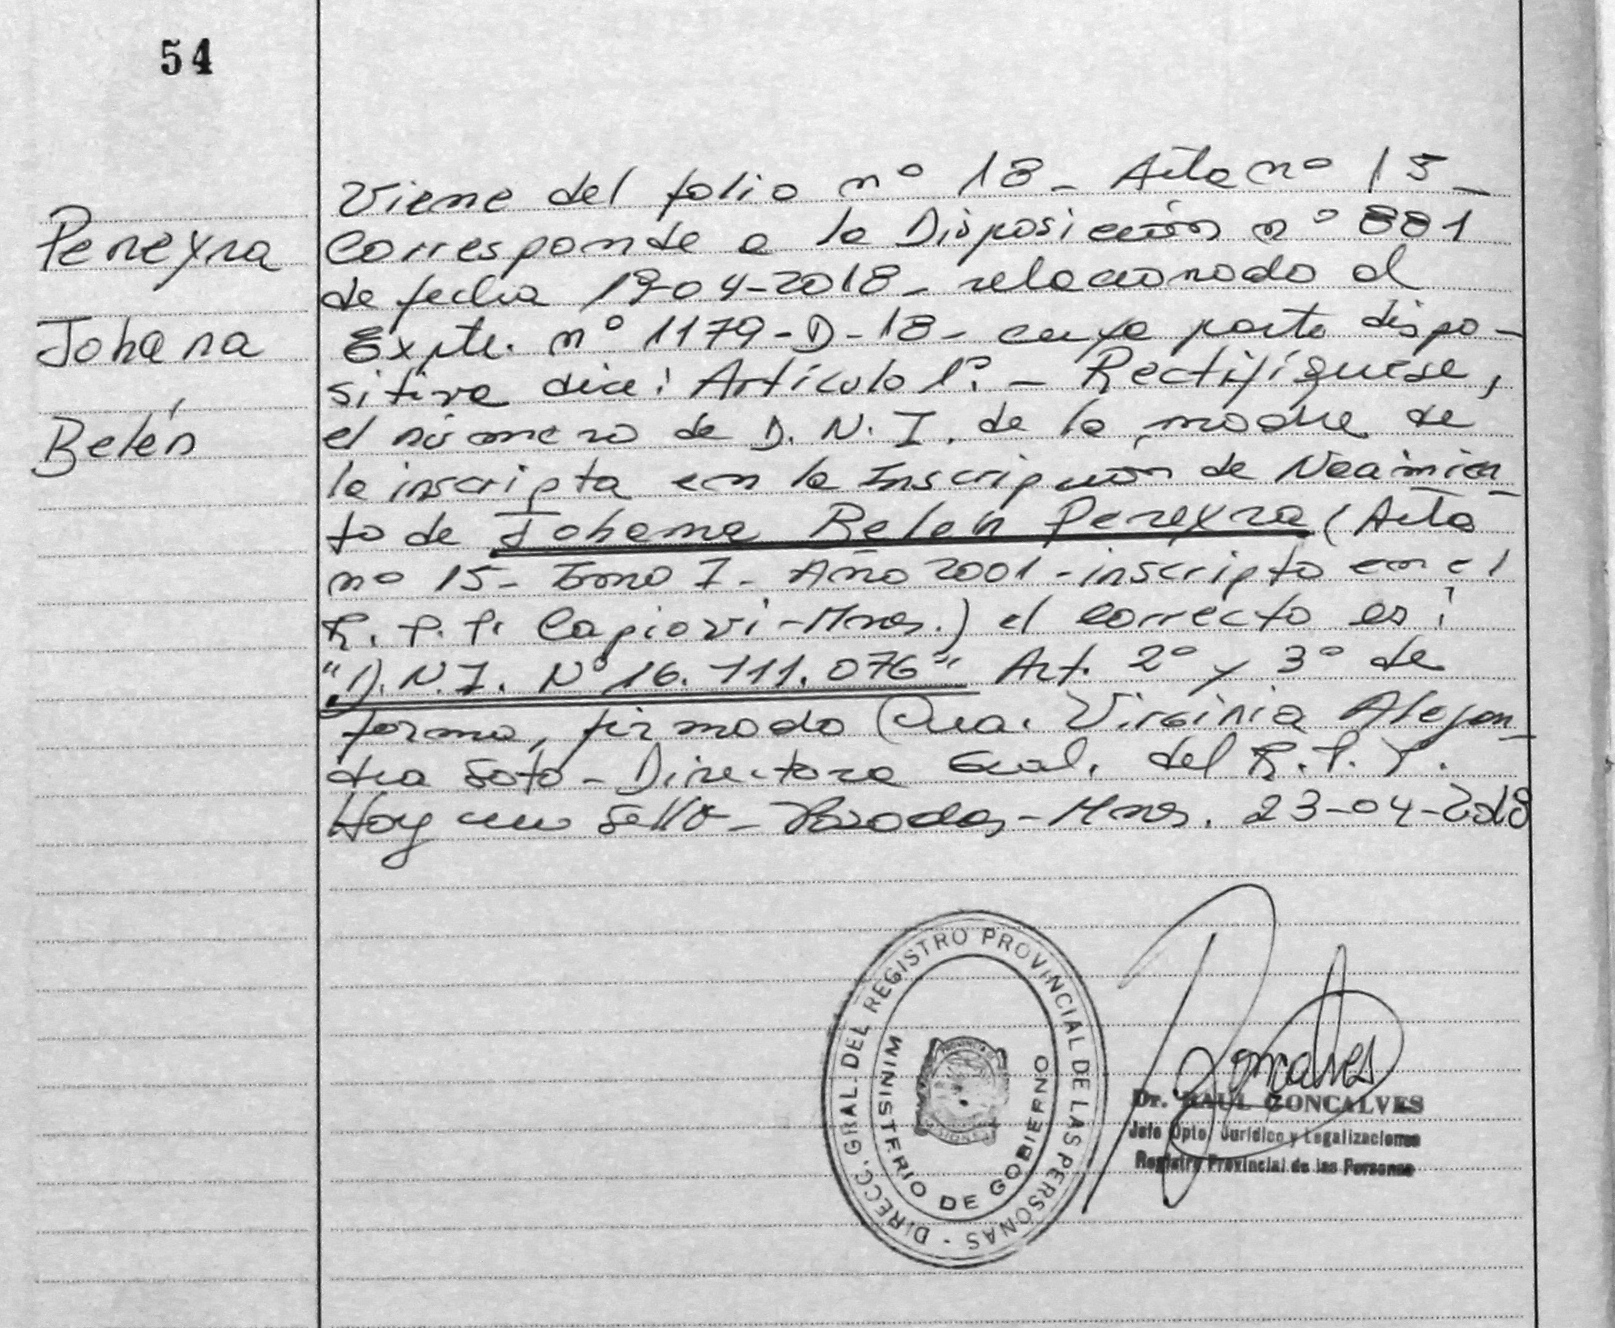 54
Pereyra
Johana
Belén
Viene del folio nº 18 - Acta nº 15 -
Corresponde a la Disposición nº 881
de fecha 19-04-2018 - relacionado al
Expte. nº 1179-D-18 - cuya parte dispo-
sitiva dice: Artículo 1º. - Rectifíquese,
el número de D.N.I. de la madre de
la inscripta en la Inscripción de Nacimien-
to de Johana Belén Pereyra (Acta
nº 15 - Tomo I - Año 2001 - inscripto en el
R.P.P. Capioví - Mnes.) el correcto es:
"D.N.I. Nº 16.711.076" Art. 2º y 3º de
forma, firmado Virginia Alejan-
dra Soto - Directora Gral. del R.P.P.
Hay un sello - Posadas - Mnes. 23-04-2018
DIRECC. GRAL. DEL REGISTRO PROVINCIAL DE LAS PERSONAS -
MINISTERIO DE GOBIERNO
PROVINCIA
MISIONES
Goncalves
Dr. RAUL GONCALVES
Jefe Dpto. Jurídico y Legalizaciones
Registro Provincial de las Personas